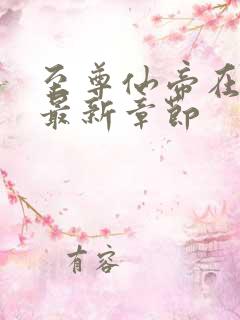 至尊仙帝在
最新章节
有容